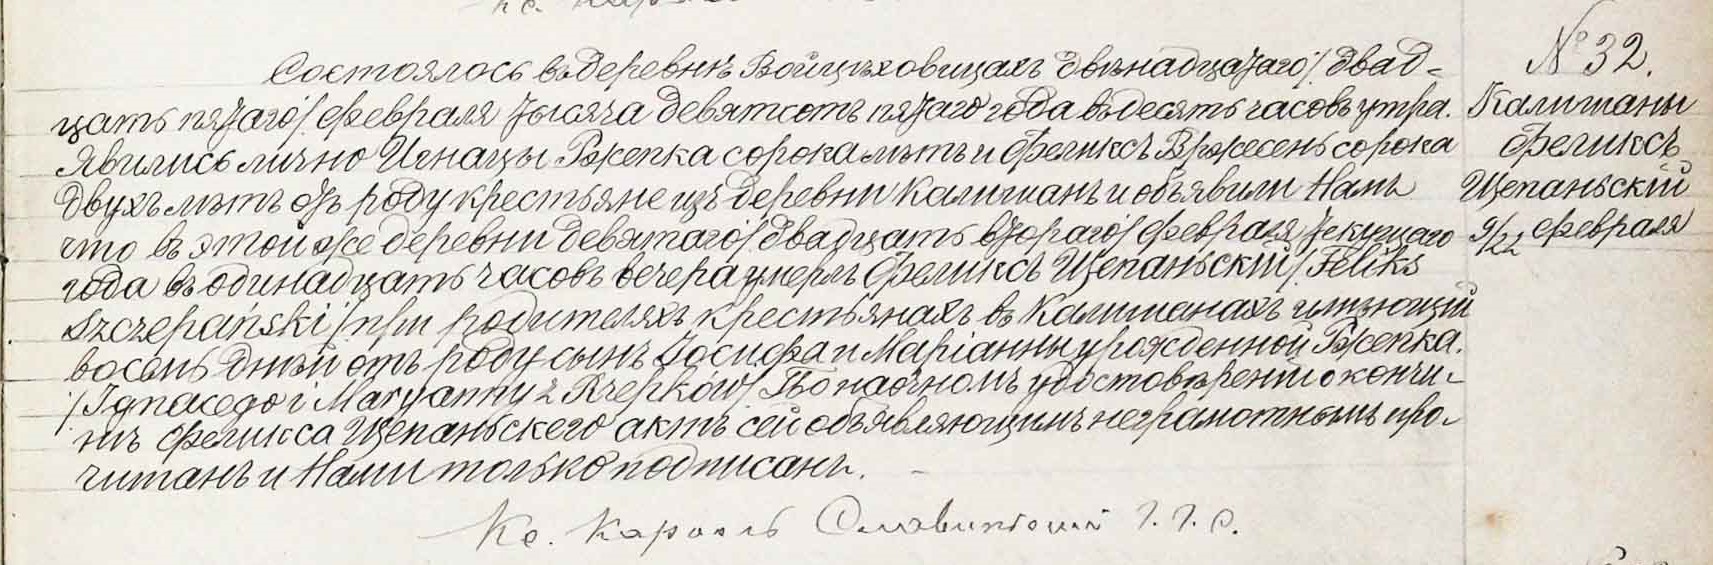 Состоялось въ деревнѣ Войцѣховицахъ двѣнадцатаго / двад-
цать пятаго / февраля тысяча девятсотъ пятаго года въ десять часовъ утра.
Явились лично Игнацы Ржепка сорока лѣтъ и Феликсъ Вржесень сорока
двухъ лѣтъ отъ роду крестьяне изъ деревни Калишанъ и объявили Намъ
что въ этой же деревни девятаго / двадцать втораго / февраля текущаго
года въ одинадцать часовъ вечера умеръ Феликсъ Щепаньский / Feliks
Szczepański / при родителяхъ крестьянахъ въ Калишанахъ имѣющій
восемь дней отъ роду сынъ Іосифа и Маріанны урожденной Ржепка.
/ Ignacego i Maryanny z Rzepków / По наочномъ удостовѣреніи о кончи-
нѣ Феликса Щепаньскего актъ сей объявляющимъ неграмотнымъ про-
читанъ и Нами только подписанъ.
Кс. Кароль
№ 32.
Калишаны
Феликсъ
Щепаньскій
9/22 февраля